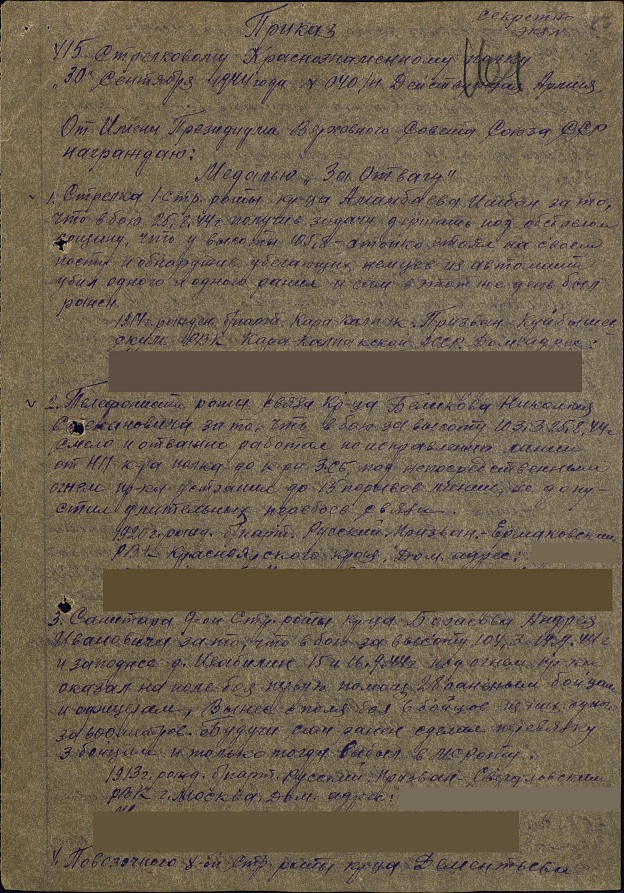 Приказ
секретно
экз.
415 Стрелковому Краснознаменному полку
"30" Сентября 1944 года № 040/н Действующая Армия.
От Имени Президиума Верховного Совета Союза ССР
награждаю:
Медалью "За Отвагу"
1. Стрелка 1 стр. роты кр-ца за то,
что в бою 25.8.44г получив задачу держать под обстрелом
что у высоты 105,8 - стойко стоял на своем
посту и обнаружив убегающих немцев из автомата
убил одного и одного ранил и сам в этот же день был
ранен.
рожден. б/парт. Кара Калпак. Призван
РВК Кара-Калпакской АССР. Дом. адрес:
2. Телефониста роты связи кр-ца Николая
за то, что в бою за высоту 113,3 25.8.44г
смело и отважно работал по исправлению линии
от НП к-ра полка до к-ра 3 сб, под непосредственным
огнем пр-ка устранил до 15 порывов линии, не допу-
стил длительных перебоев связи.
рожд. б/парт. Русский. Призван - Ермаковским
РВК Красноярского края. Дом. адрес:
3. Санитара стр. роты кр-ца Андрея
Ивановича за то, что в бою за высоту
и д. 15 и 16.9.44г под огнем пр-ка
оказал на поле боя первую помощь 28 раненым бойцам
и офицерам, вынес с поля боя бойцов из них одного
за метров. Будучи сам ранен сделал перевязку
3 бойцам и только тогда
1913г. рожд. б/парт. Русский. Призван Свердловским
РВК г. Москва. Дом. адрес:
4. Повозочного 8-ой Стр. роты кр-ца Дементьева